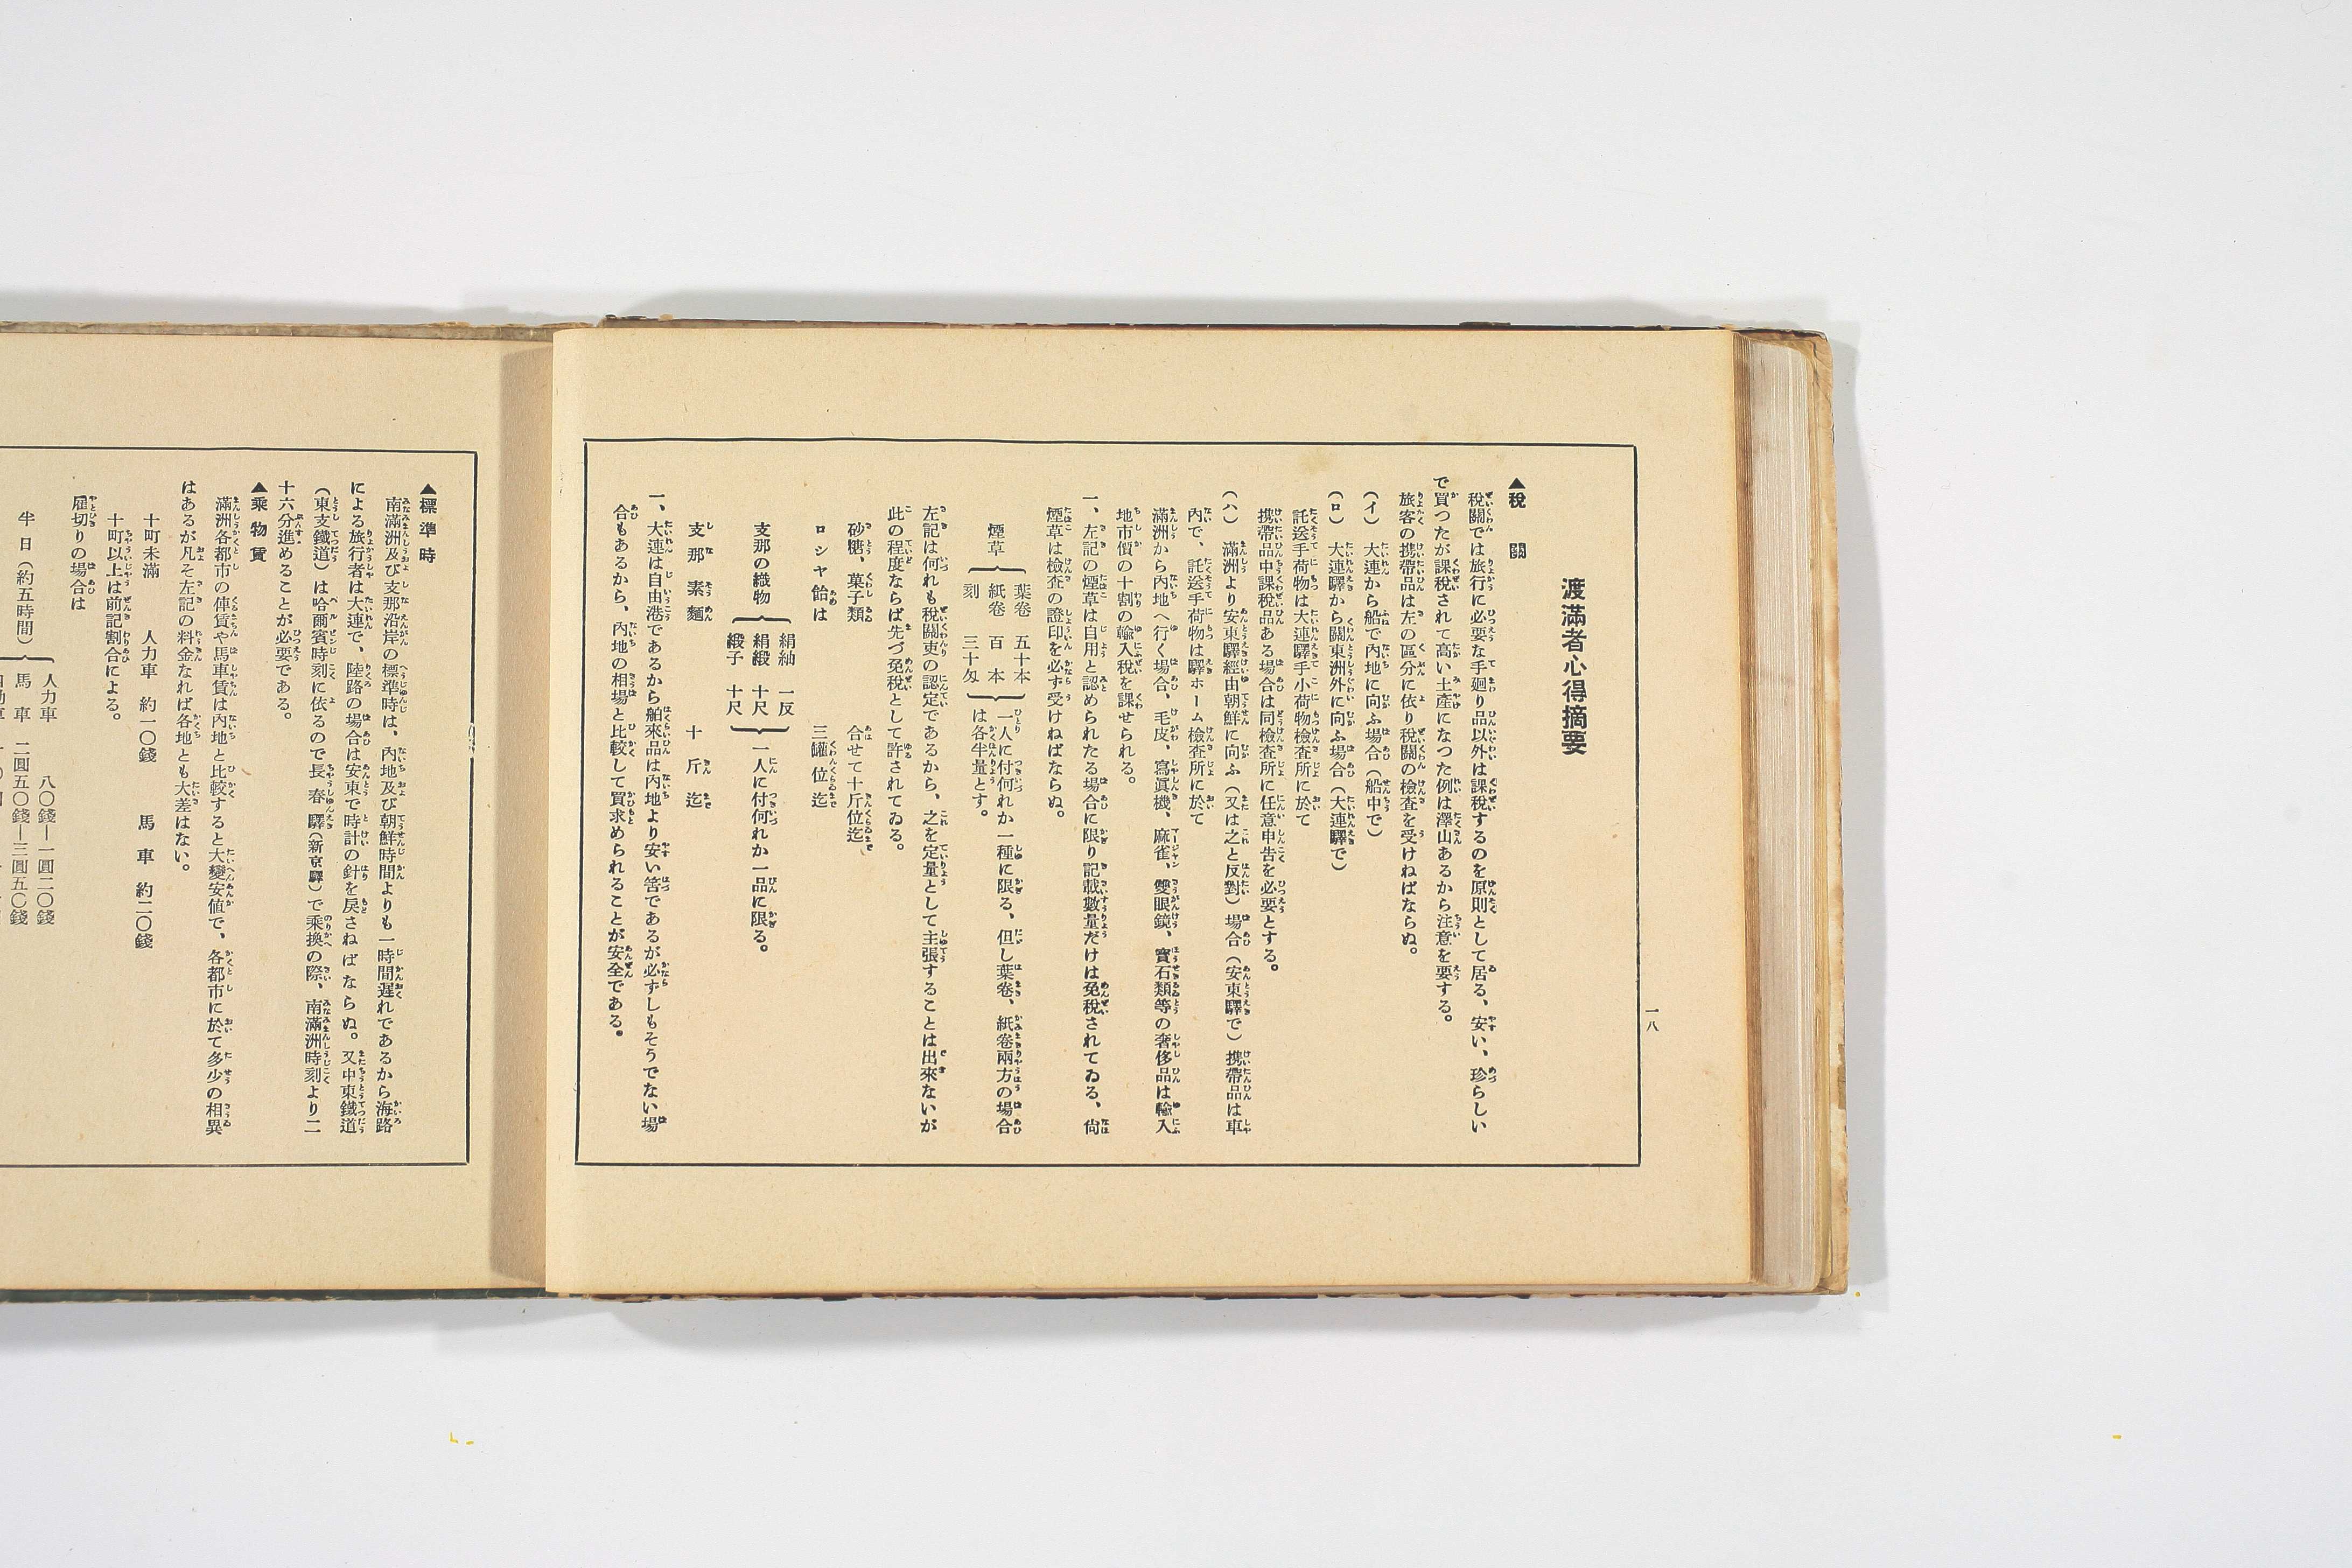 一八
渡滿者心得摘要
▲稅關
稅關では旅行に必要な手廻り品以外は課稅するのを原則として居る、安い、珍らしい
で買つたが課稅されて高い土產になつた例は澤山あるから注意を要する。
旅客の携帶品は左の區分に依り稅關の檢査を受けねばならぬ。
(イ) 大連から船で內地に向ふ場合(船中で)
(ロ) 大連驛から關東洲外に向ふ場合(大連驛で)
託送手荷物は大連驛手小荷物檢査所に於て
携帶品中課稅品ある場合は同檢査所に任意申告を必要とする。
(ハ) 滿洲より安東驛經由朝鮮に向ふ(又は之と反對)場合(安東驛で)携帶品は車
內で、託送手荷物は驛ホーム檢査所に於て
滿洲から內地へ行く場合、毛皮、寫眞機、麻雀、雙眼鏡、寶石類等の奢侈品は輸入
地市價の十割の輸入稅を課せられる。
一、左記の煙草は自用と認められたる場合に限り記載數量だけは免稅されてゐる、尙
煙草は檢査の證印を必ず受けねばならぬ。
煙草 葉卷 五十本
紙卷 百本
刻 三十匁
一人に付何れか一種に限る、但し葉卷、紙卷兩方の場合
は各半量とす。
左記は何れも稅關吏の認定であるから、之を定量として主張することは出來ないが
此の程度ならば先づ免稅として許されてゐる。
砂糖、菓子類 合せて十斤位迄
ロシヤ飴は 三罐位迄
支那の織物 絹紬 一反
絹緞 十尺
緞子 十尺
一人に付何れか一品に限る。
支那素麵 十斤迄
一、大連は自由港であるから舶來品は內地より安い筈であるが必ずしもそうでない場
合もあるから、內地の相場と比較して買求められることが安全である。
▲標準時
南滿洲及び支那沿岸の標準時は、內地及び朝鮮時間よりも一時間遲れであるから海路
による旅行者は大連で、陸路の場合は安東で時計の針を戾さねばならぬ。又中東鐵道
(東支鐵道)は哈爾賓時刻に依るので長春驛(新京驛)で乘換の際、南滿洲時刻より二
十六分進めることが必要である。
▲乘物賃
滿洲各都市の俥賃や馬車賃は內地と比較すると大變安値で、各都市に於て多少の相異
はあるが凡そ左記の料金なれば各地とも大差はない。
十町未滿 人力車 約一〇錢 馬車 約二〇錢
十町以上は前記割合による。
雇切りの場合は
半日(約五時間) 人力車 八〇錢―一圓二〇錢
馬車 二圓五〇錢―三圓五〇錢